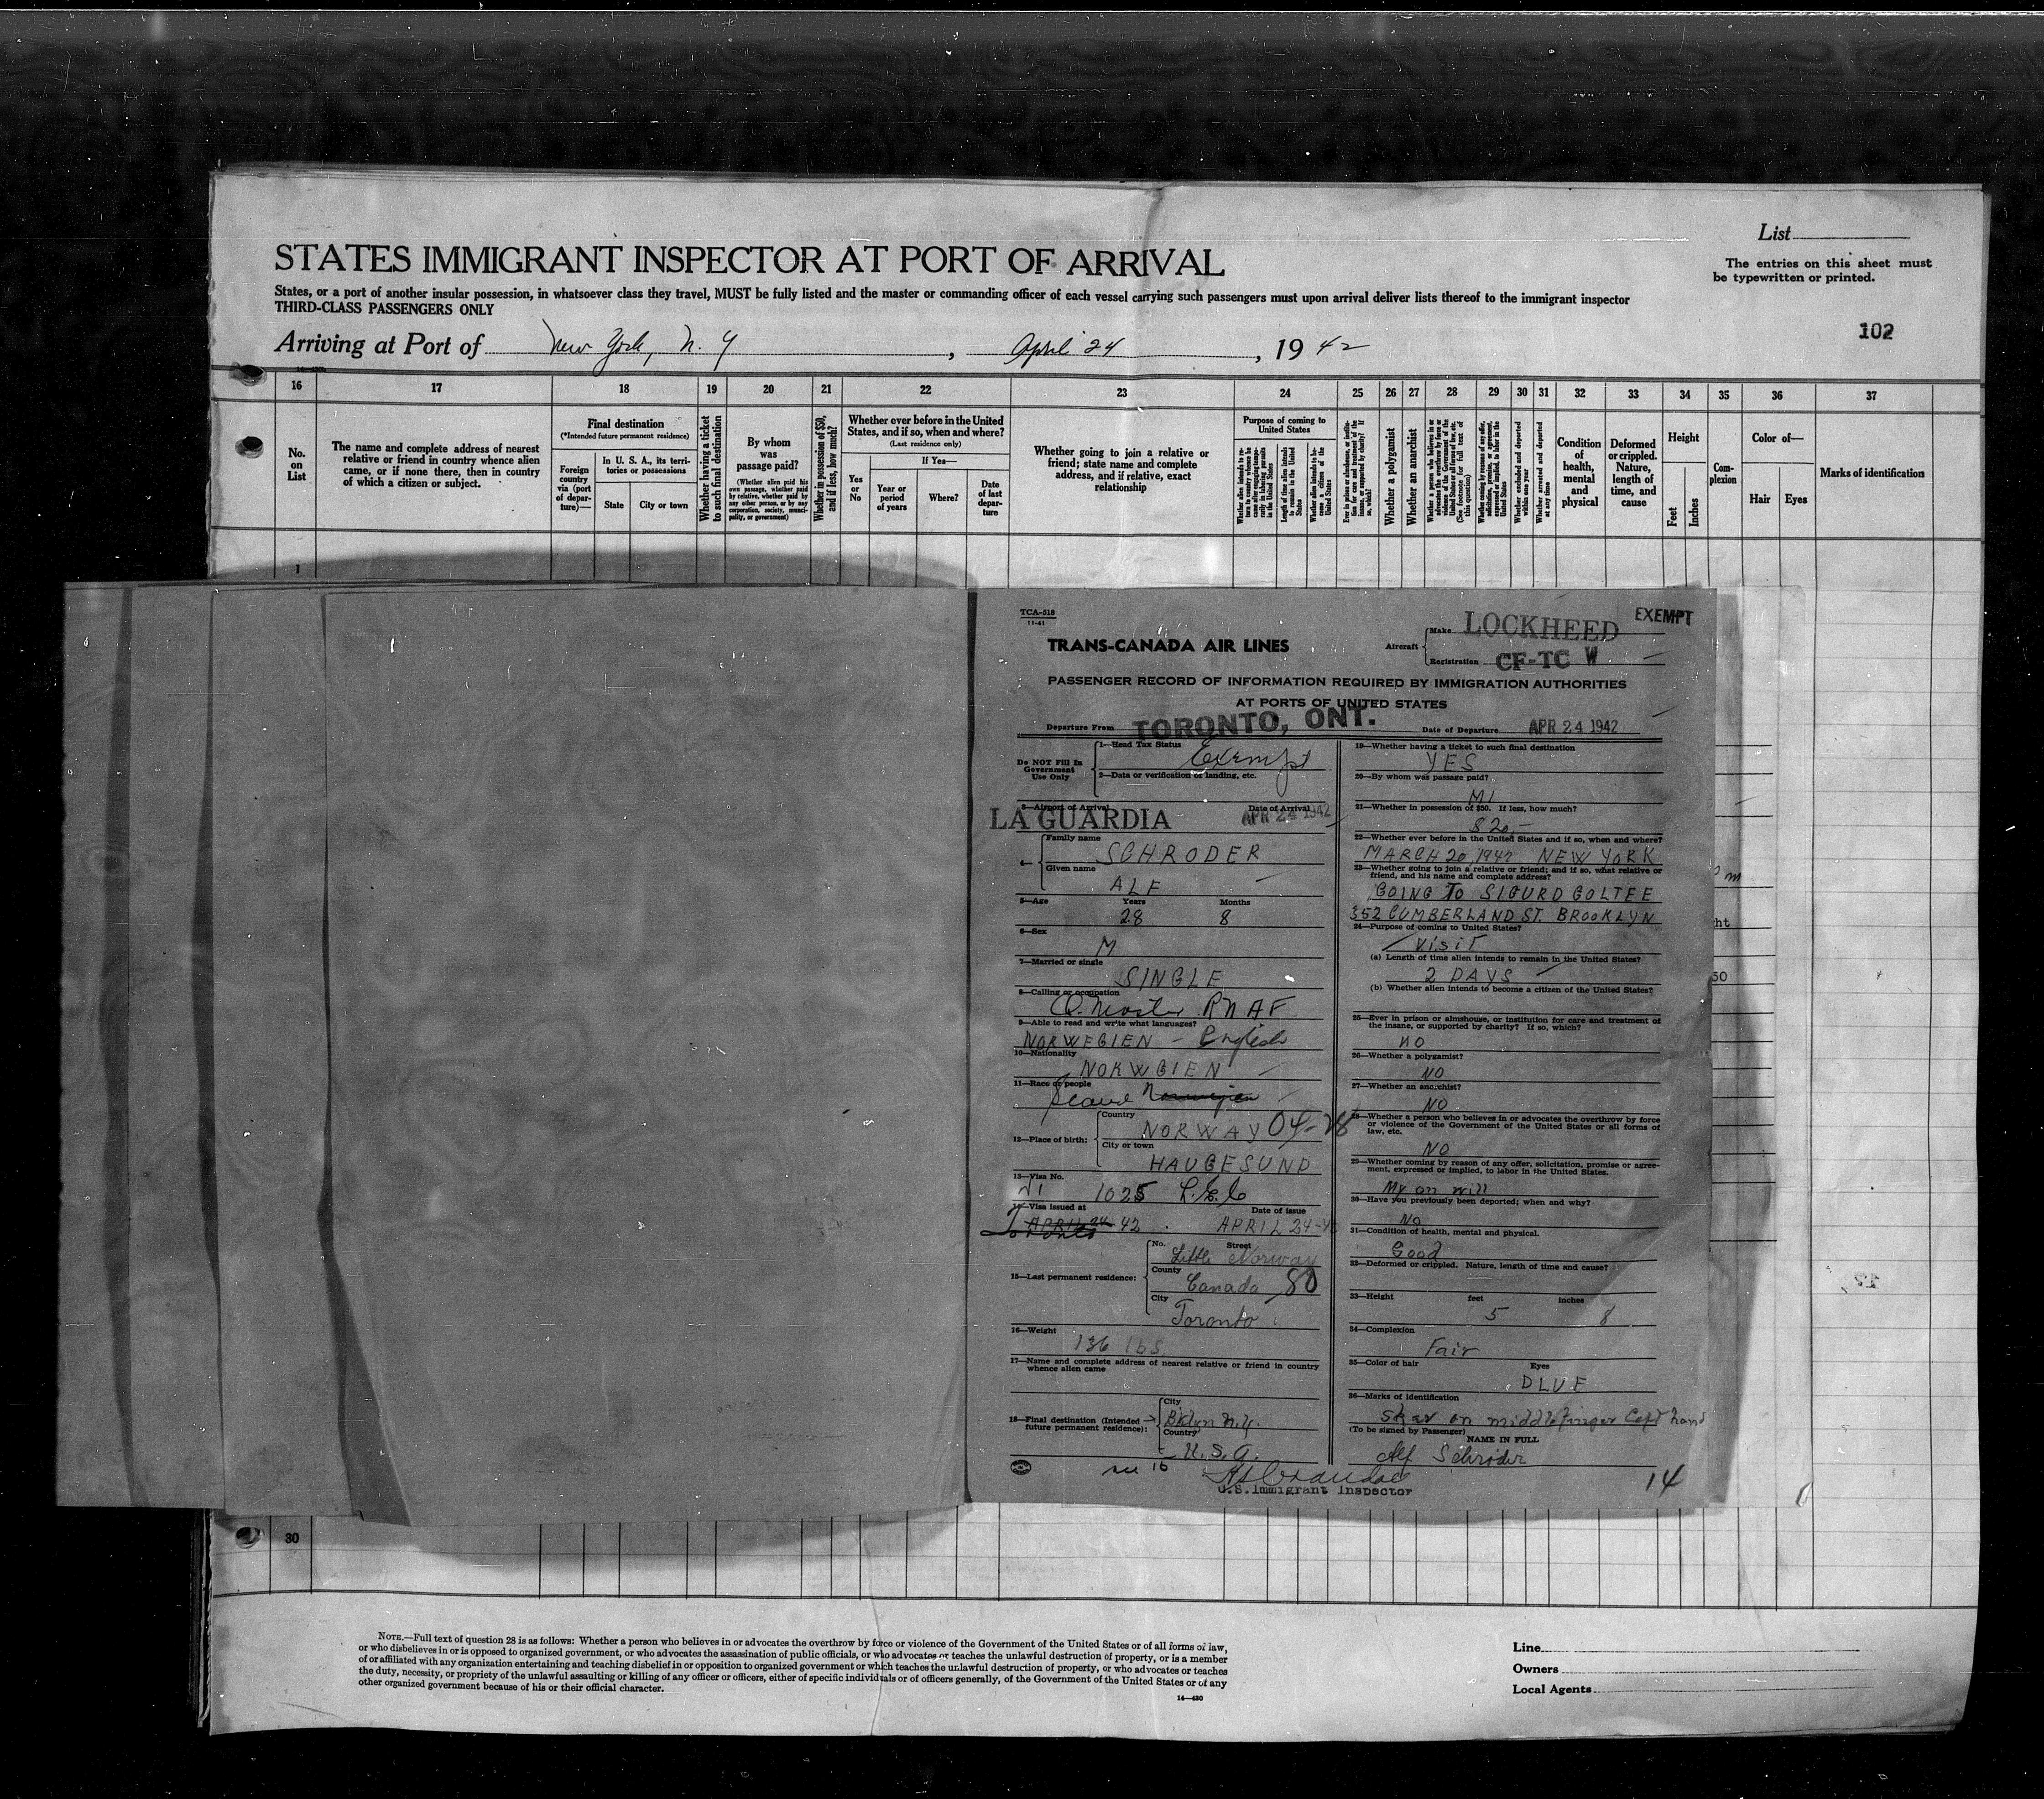 STATES IMMIGRANT INSPECTOR AT PORT OF ARRIVAL
List
The entries on this sheet must
be typewritten or printed.
States, or a port of another insular possession, in whatsoever class they travel, MUST be fully listed and the master or commanding officer of each vessel carrying such passengers must upon arrival deliver lists thereof to the immigrant inspector
THIRD-CLASS PASSENGERS ONLY
102
Arriving at Port of New York, N. Y, April 24, 19 42
16 17 18 19 20 21 22 23 24 25 26 27 28 29 30 31 32 33 34 35 36 37
No.
on
List
The name and complete address of nearest
relative or friend in country whence alien
came, or if none there, then in country
of which a citizen or subject.
Final destination
(*Intended future permanent residence)
Foreign
country
via (port
of depar-
ture)—
In U. S. A., its terri-
tories or possessions
State
City or town
Whether having a ticket
to such final destination
By whom
was
passage paid?
(Whether alien paid his
own passage, whether paid
by relative, whether paid by
any other person, or by any
corporation, society, munici-
pality, or government)
Whether in possession of $50,
and if less, how much?
Whether ever before in the United
States, and if so, when and where?
(Last residence only)
If Yes—
Yes
or
No
Year or
period
of years
Where?
Date
of last
depar-
ture
Whether going to join a relative or
friend; state name and complete
address, and if relative, exact
relationship
Purpose of coming to
United States
Length of time alien intends
to remain in the United
States
Whether a polygamist
Whether an anarchist
Whether excluded and deported
within one year
Whether arrested and deported
at any time
Condition
of
health,
mental
and
physical
Deformed
or crippled.
Nature,
length of
time, and
cause
Height
Feet
Inches
Com-
plexion
Color of—
Hair
Eyes
Marks of identification
1
TCA-518
11-41
TRANS-CANADA AIR LINES
Aircraft
Make LOCKHEED
Registration CF-TC W
EXEMPT
PASSENGER RECORD OF INFORMATION REQUIRED BY IMMIGRATION AUTHORITIES
AT PORTS OF UNITED STATES
Departure From TORONTO, ONT.
Date of Departure APR 24 1942
Do NOT Fill In
Government
Use Only
1—Head Tax Status
Exempt
2—Data or verification of landing, etc.
3—Airport of Arrival
Date of Arrival
LA GUARDIA
APR 24 1942
4—
Family name
SCHRODER
Given name
ALF
5—Age
Years
Months
28
8
6—Sex
M
7—Married or single
SINGLE
8—Calling or occupation
Q. Master RNAF
9—Able to read and write what languages?
NORWEGIEN - English
10—Nationality
NORWGIEN
11—Race or people
Scand Norwegian
12—Place of birth:
Country
NORWAY
City or town
HAUGESUND
13—Visa No.
1025
14—Visa issued at
Date of issue
Toronto APRIL 24-42
APRIL 24-4
15—Last permanent residence:
No.
Street
Little Norway
County
Canada 80
City
Toronto
16—Weight
136 lbs
17—Name and complete address of nearest relative or friend in country
whence alien came
18—Final destination (Intended
future permanent residence):
City
Bklyn N.Y.
Country
U.S.A.
U.S. Immigrant Inspector
19—Whether having a ticket to such final destination
YES
20—By whom was passage paid?
21—Whether in possession of $50. If less, how much?
$20.-
22—Whether ever before in the United States and if so, when and where?
MARCH 20, 1942 NEW YORK
23—Whether going to join a relative or friend; and if so, what relative or
friend, and his name and complete address?
GOING TO SIGURD GOLTEE
352 CUMBERLAND ST. BROOKLYN
24—Purpose of coming to United States?
VisiT
(a) Length of time alien intends to remain in the United States?
2 DAYS
(b) Whether alien intends to become a citizen of the United States?
25—Ever in prison or almshouse, or institution for care and treatment of
the insane, or supported by charity? If so, which?
NO
26—Whether a polygamist?
NO
27—Whether an anarchist?
NO
28—Whether a person who believes in or advocates the overthrow by force
or violence of the Government of the United States or all forms of
law, etc.
NO
29—Whether coming by reason of any offer, solicitation, promise or agree-
ment, expressed or implied, to labor in the United States.
My on will
30—Have you previously been deported; when and why?
No
31—Condition of health, mental and physical.
Good
32—Deformed or crippled. Nature, length of time and cause?
33—Height
feet
inches
5
8
34—Complexion
Fair
35—Color of hair
Eyes
BLUE
36—Marks of identification
skar on middlefinger Left hand
(To be signed by Passenger)
NAME IN FULL
Alf Schröder
14
30
NOTE.—Full text of question 28 is as follows: Whether a person who believes in or advocates the overthrow by force or violence of the Government of the United States or of all forms of law,
or who disbelieves in or is opposed to organized government, or who advocates the assassination of public officials, or who advocates or teaches the unlawful destruction of property, or is a member
of or affiliated with any organization entertaining and teaching disbelief in or opposition to organized government or which teaches the unlawful destruction of property, or who advocates or teaches
the duty, necessity, or propriety of the unlawful assaulting or killing of any officer or officers, either of specific individuals or of officers generally, of the Government of the United States or of any
other organized government because of his or their official character.
14—430
Line
Owners
Local Agents